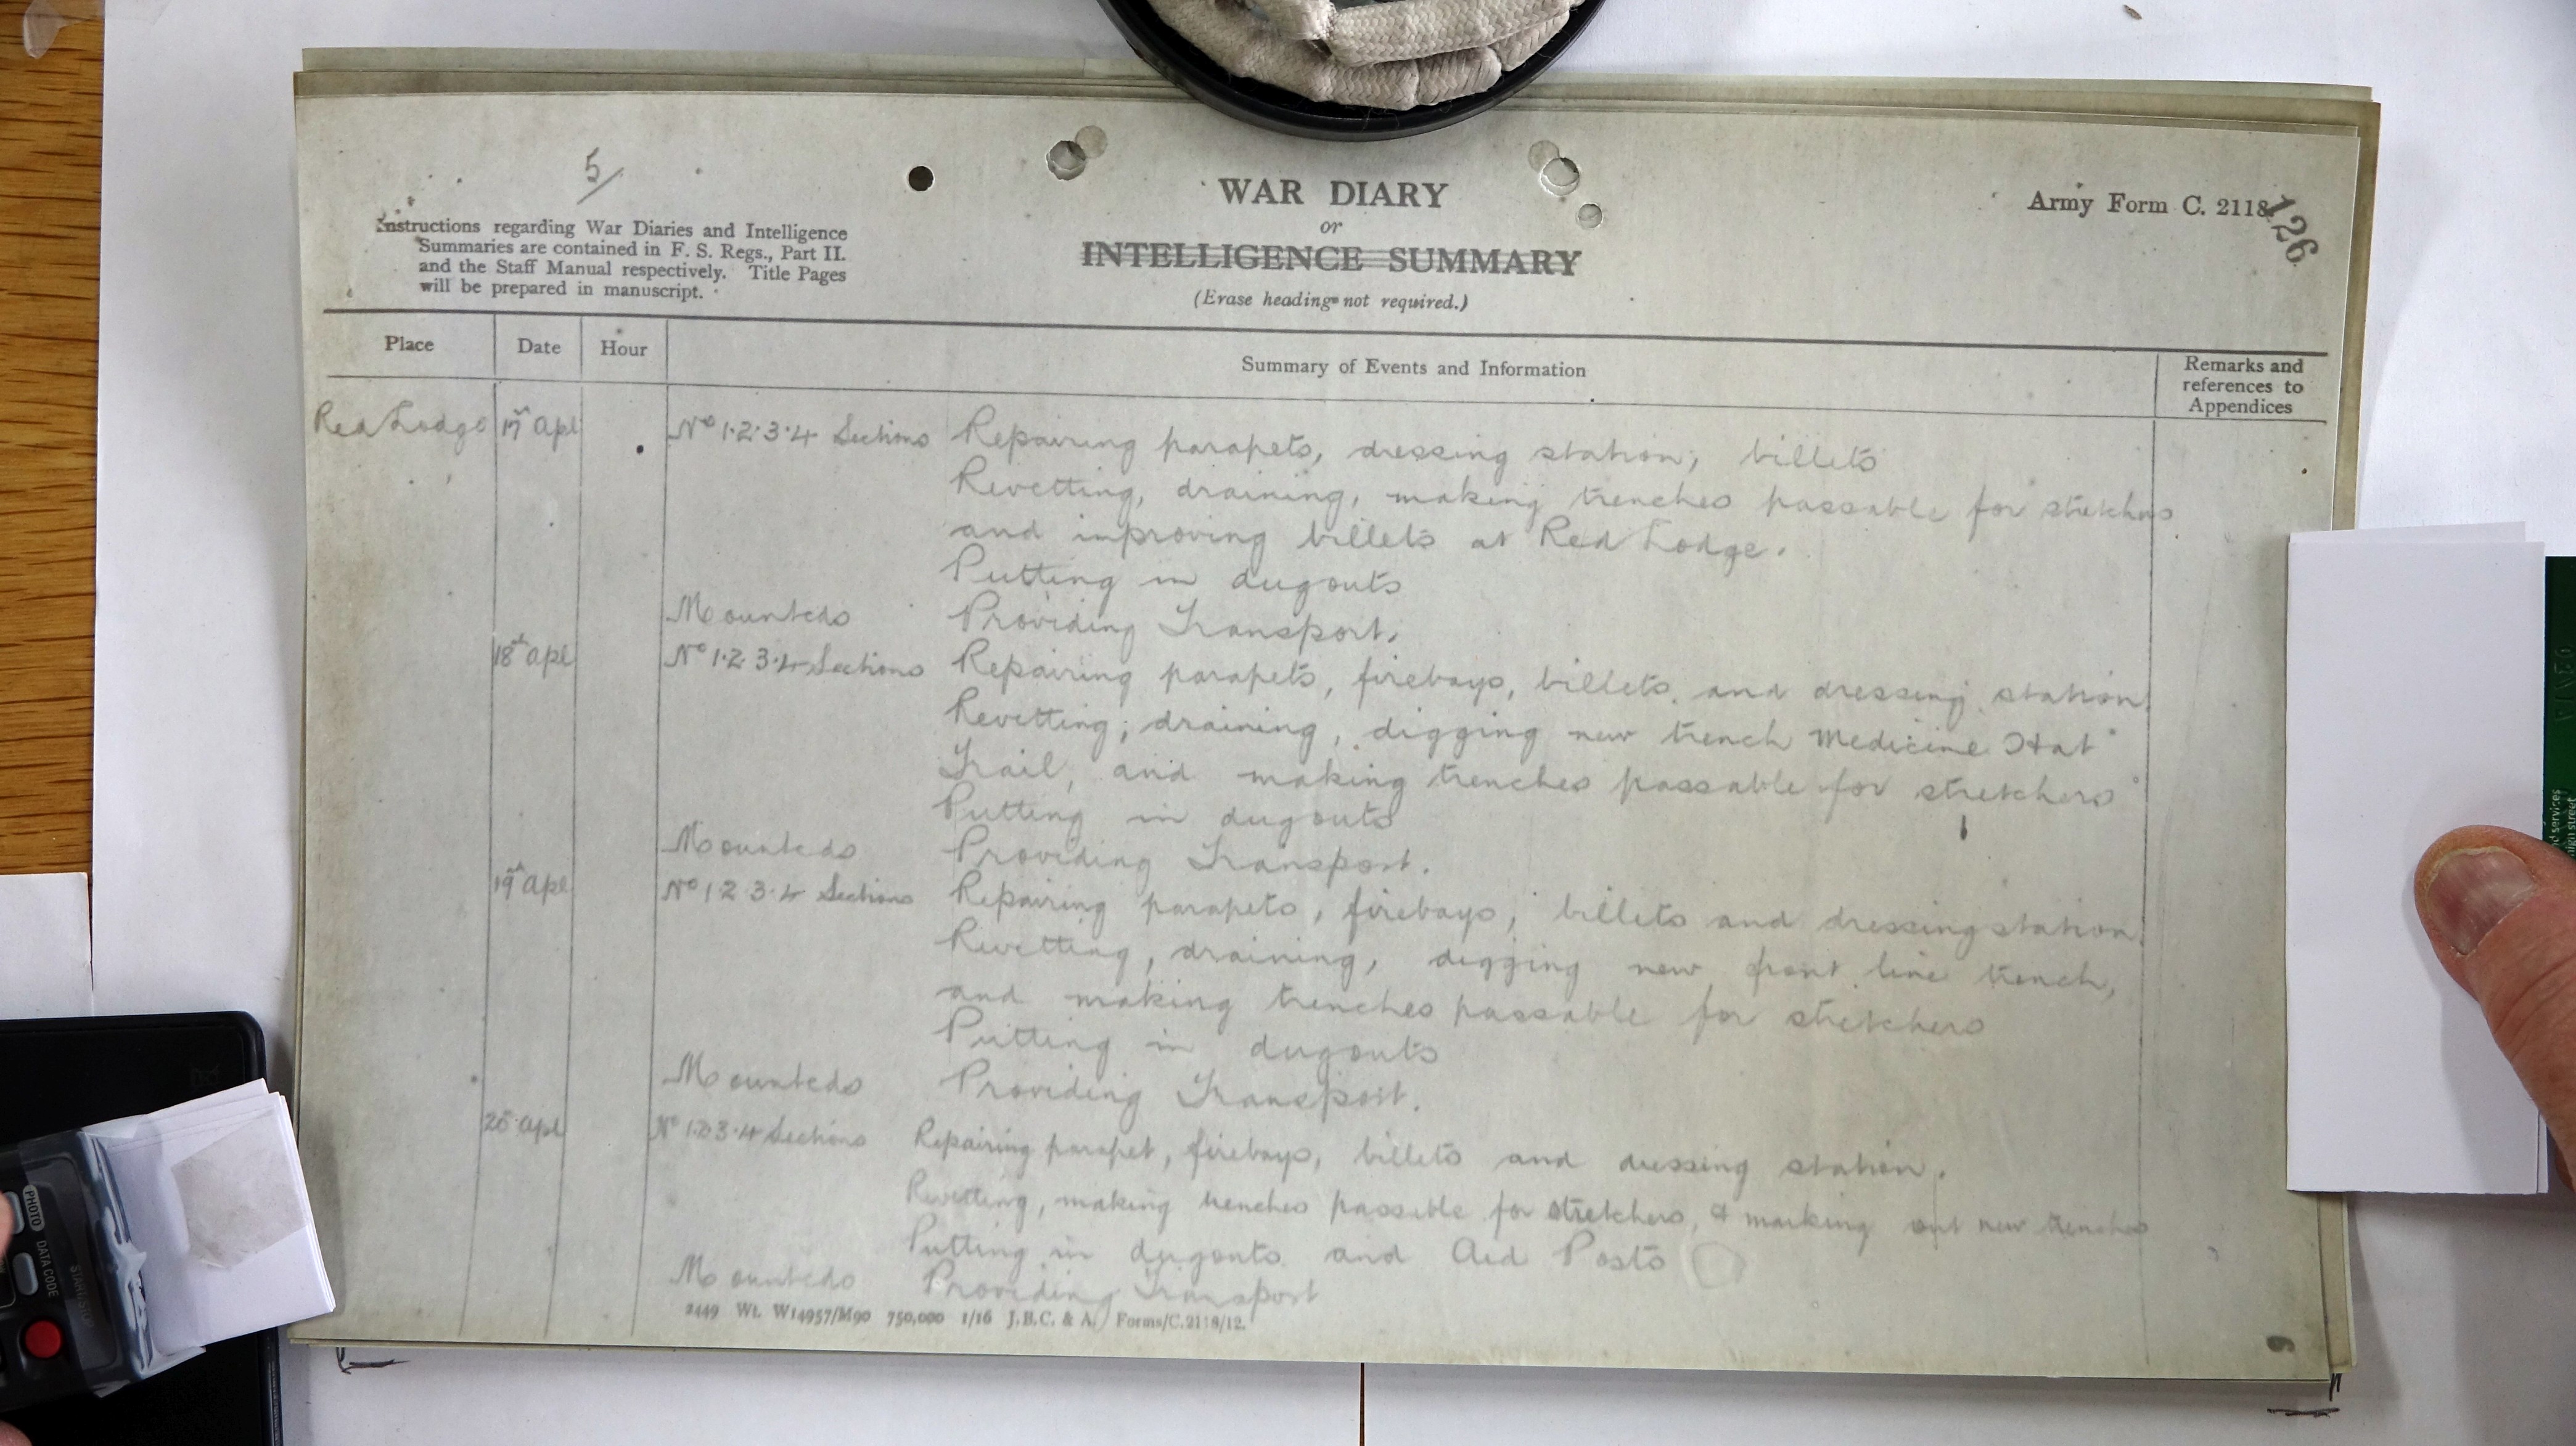 5/
WAR DIARY
or
INTELLIGENCE SUMMARY
(Erase heading not required.)
Army Form C. 2118
126
Instructions regarding War Diaries and Intelligence
Summaries are contained in F. S. Regs., Part II.
and the Staff Manual respectively. Title Pages
will be prepared in manuscript.
Place Date Hour Summary of Events and Information Remarks and references to Appendices
Red Lodge 17th Apl No 1.2.3.4 Sections Repairing parapets, dressing station, billets
Revetting, draining, making trenches passable for stretchers
and improving billets at Red Lodge.
Putting in dugouts
Mounteds Providing Transport.
18th Apl No 1.2.3.4 Sections Repairing parapets, firebays, billets, and dressing station.
Revetting, draining, digging new trench Medicine Hat
Trail, and making trenches passable for stretchers
Putting in dugouts
Mounteds Providing Transport.
19th Apl No 1.2.3.4 Sections Repairing parapets, firebays, billets and dressing station.
Revetting, draining, digging new front line trench,
and making trenches passable for stretchers
Putting in dugouts
Mounteds Providing Transport.
Apl No 1.2.3.4 Sections Repairing parapet, firebays, billets and dressing station.
Revetting, making trenches passable for stretchers, & marking out new trenches
Putting in dugouts and Aid Posts
Mounteds Providing Transport
2449 Wt. W14957/M90 750,000 1/16 J.B.C. & A. Forms/C.2118/12.
PHOTO
DATA CODE